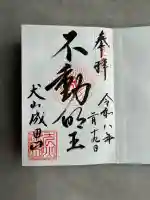 奉拝
令和八年
二月十九日
不動明王
犬山成田山